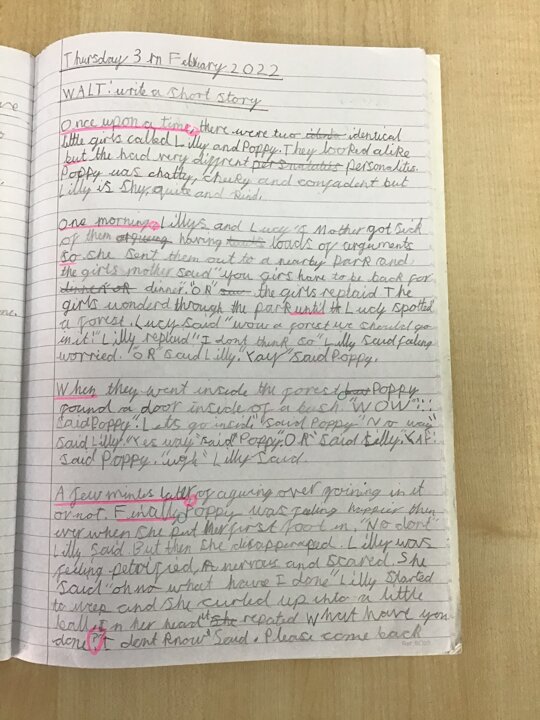 Thursday 3 rn Febuary 2022
WALT: write a short story
Once upon a time, there were two identical
little girls called Lilly and Poppy. They looked alike
but the haid very diffrent personalities.
Poppy was chatty, cheeky and confadent but
Lilly is shy, quite and kind.
One morning, Lillys and Lucy's Mother got sick
of them having loads of arguments
so she sent them out to a nearby Park and
the girls mother said "you girs have to be back for
dinner." "OR" the girls replaid The
girls wonderd through the park until Lucy spotted
a forest. Lucy said "wow a forest we should go
in it!" Lilly replaid "I dont think so" Lilly said faling
worried. "OR" said Lilly. "Yay" said Poppy.
When they went inside the forest Poppy
found a door inside of a bush "WOW!!!
said Poppy. Lets go inside" said Poppy "No way"
said Lilly "Yes way" said Poppy "OR" said Lilly. "YAF"
said Poppy. "ugh" Lilly said.
A few mintes later of aguing over goining in it
or not. Finally, Poppy was faling happier then
ever when she put her first foot in. "No dont"
Lilly said But then she disapparaped. Lilly was
feiling petrified, nervous and scared. She
said "oh no what have I done" Lilly started
to weep and she curled up into a little
ball. In her head she repated What have you
done?" I dont know" Said. Please come back